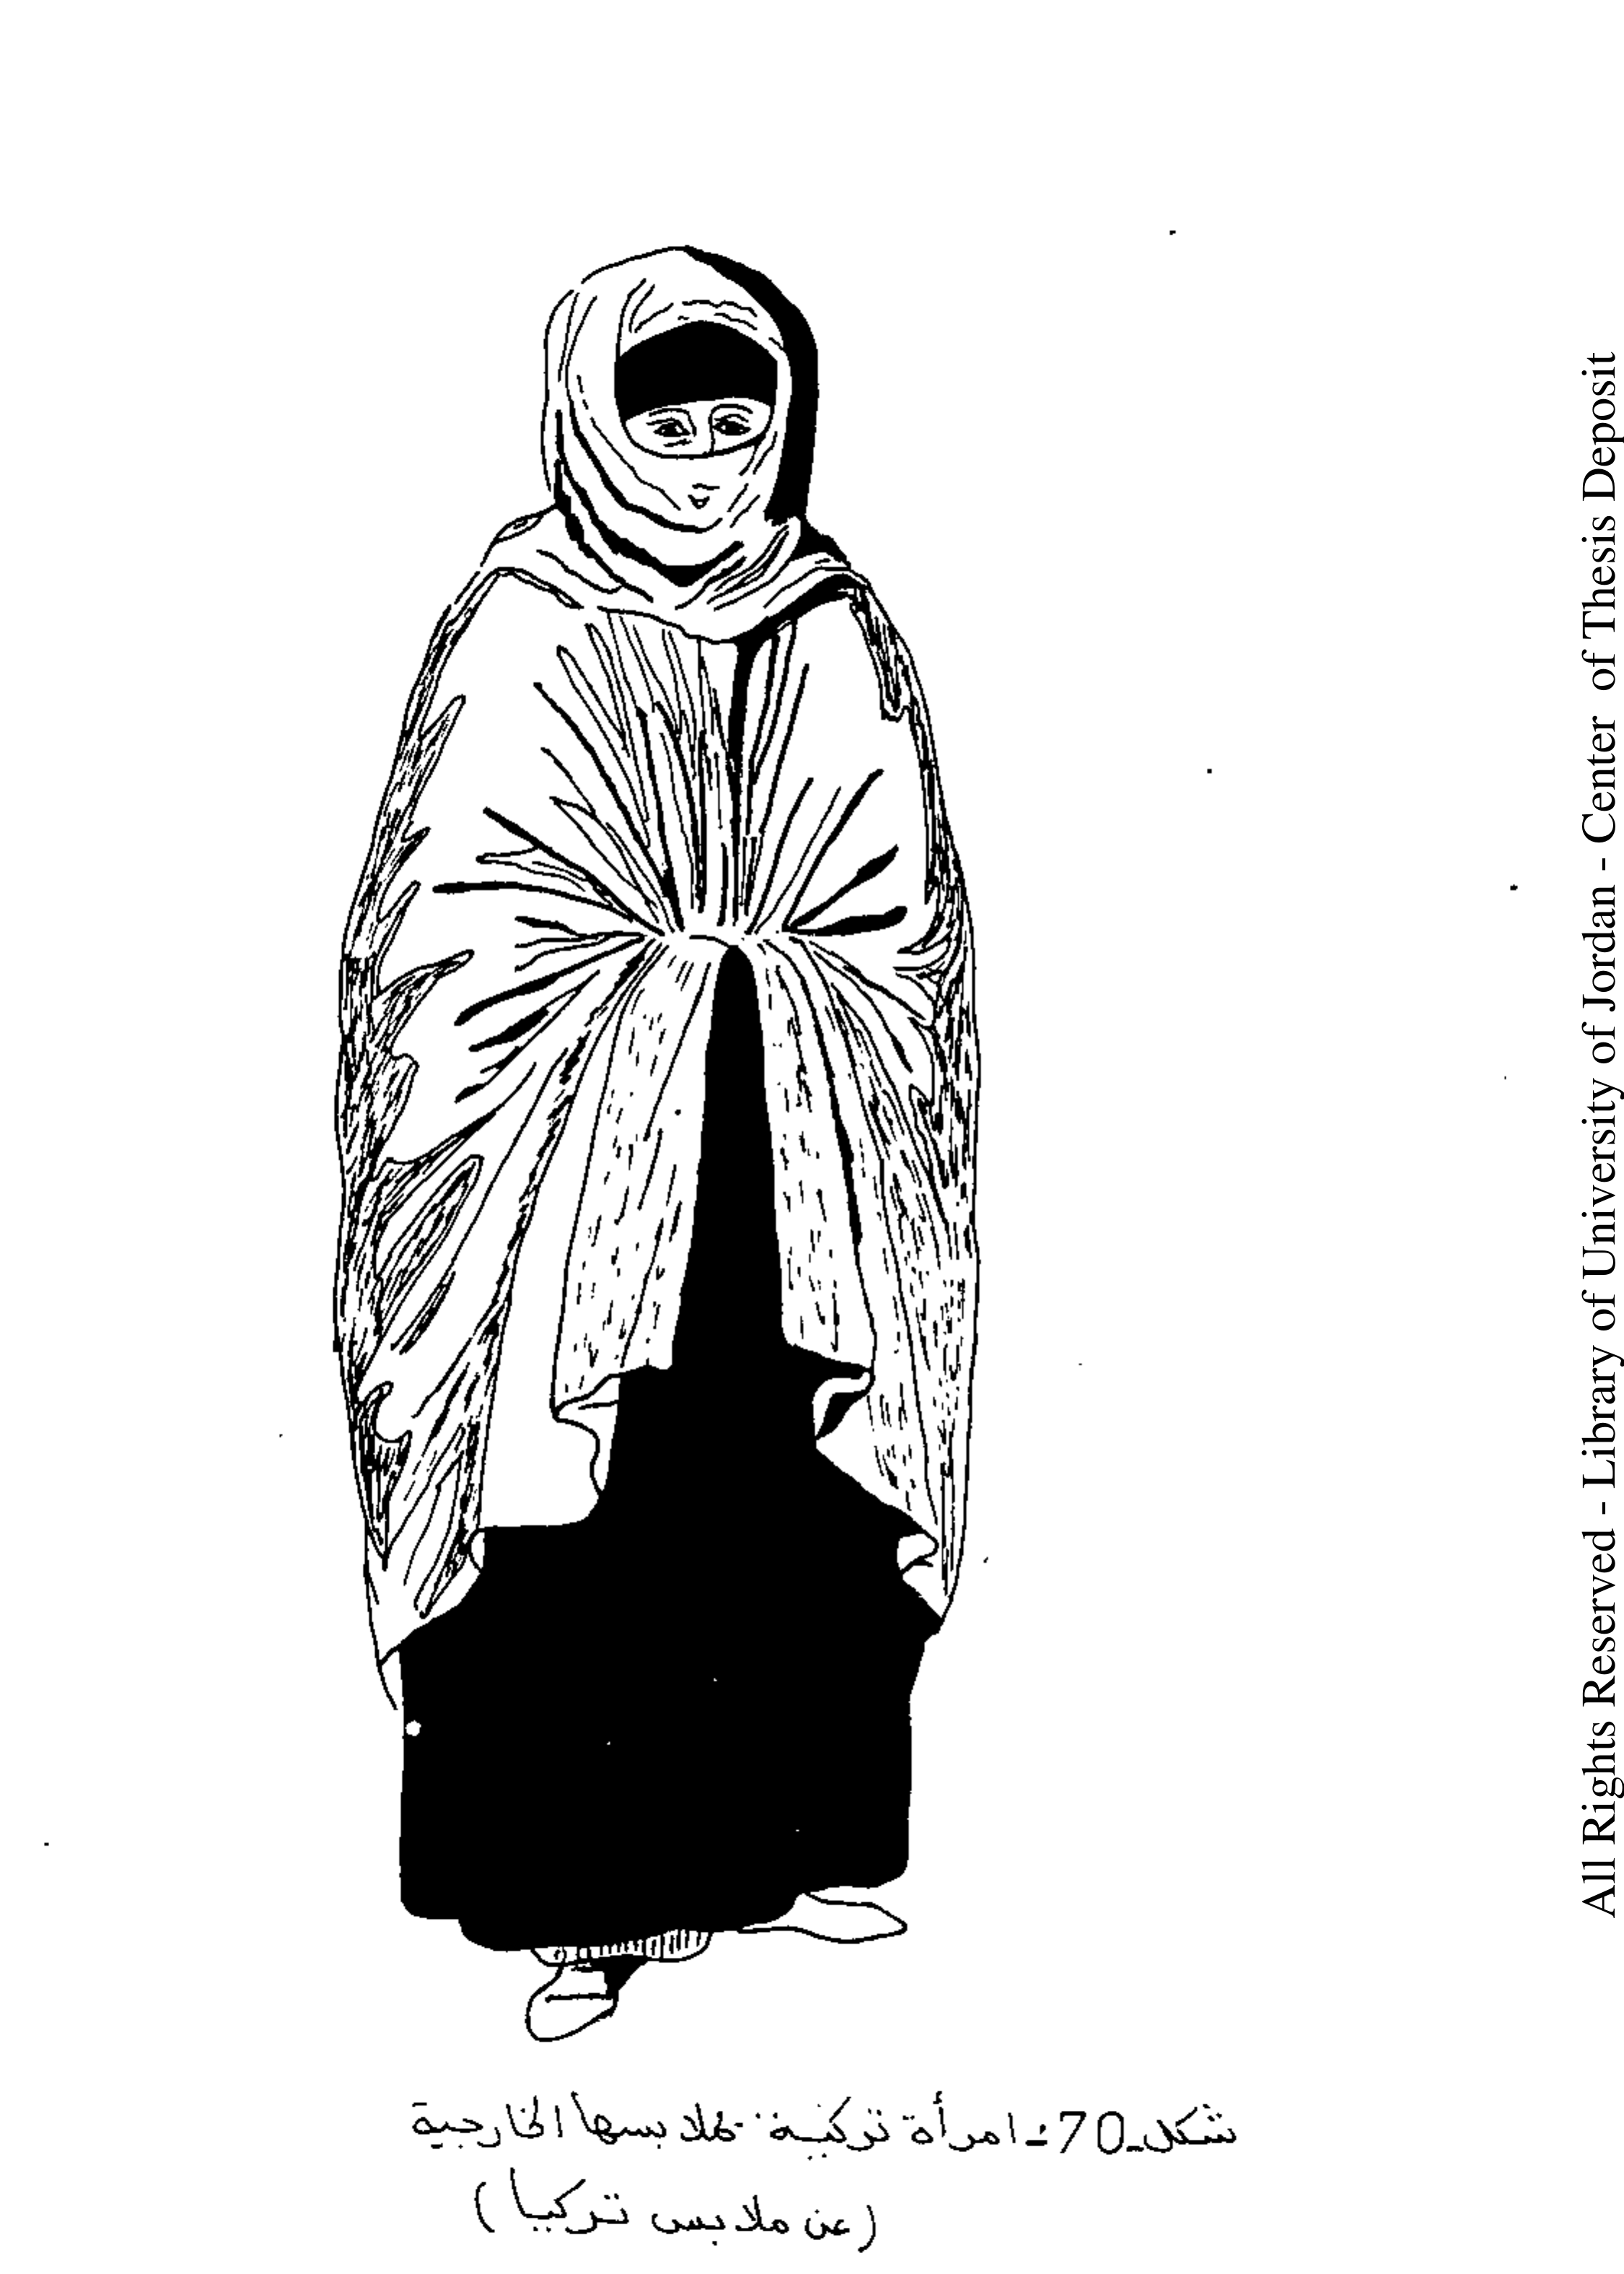 شكل-70: امرأة تركية بملابسها الخارجية
(عن ملابس تركيا)
All Rights Reserved - Library of University of Jordan - Center of Thesis Deposit